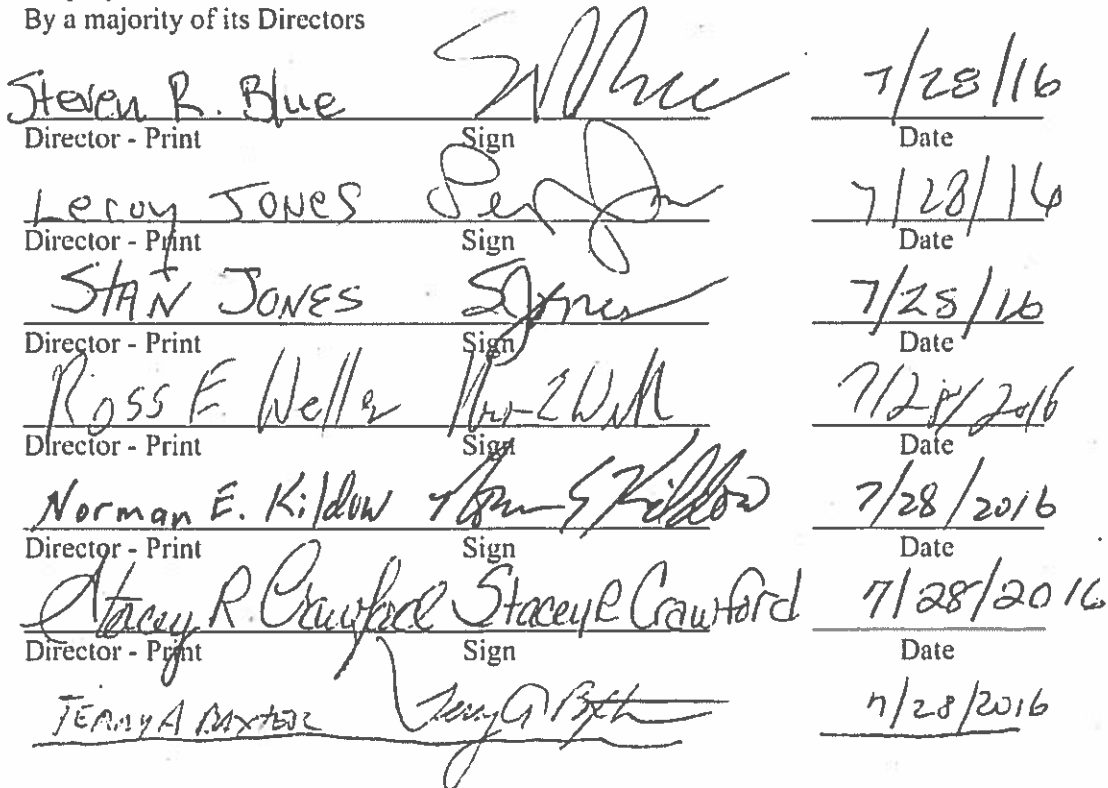 By a majority of its Directors
Steven R. Blue 7/28/16
Director - Print Sign Date
Leroy JONES 7/28/16
Director - Print Sign Date
STAN JONES SJones 7/28/16
Director - Print Sign Date
Ross E. 7/28/2016
Director - Print Sign Date
Norman E. Kildow Norman E Kildow 7/28/2016
Director - Print Sign Date
Stacey R Crawford Stacey R Crawford 7/28/2016
Director - Print Sign Date
TERRY A BAXTER Terry A 7/28/2016